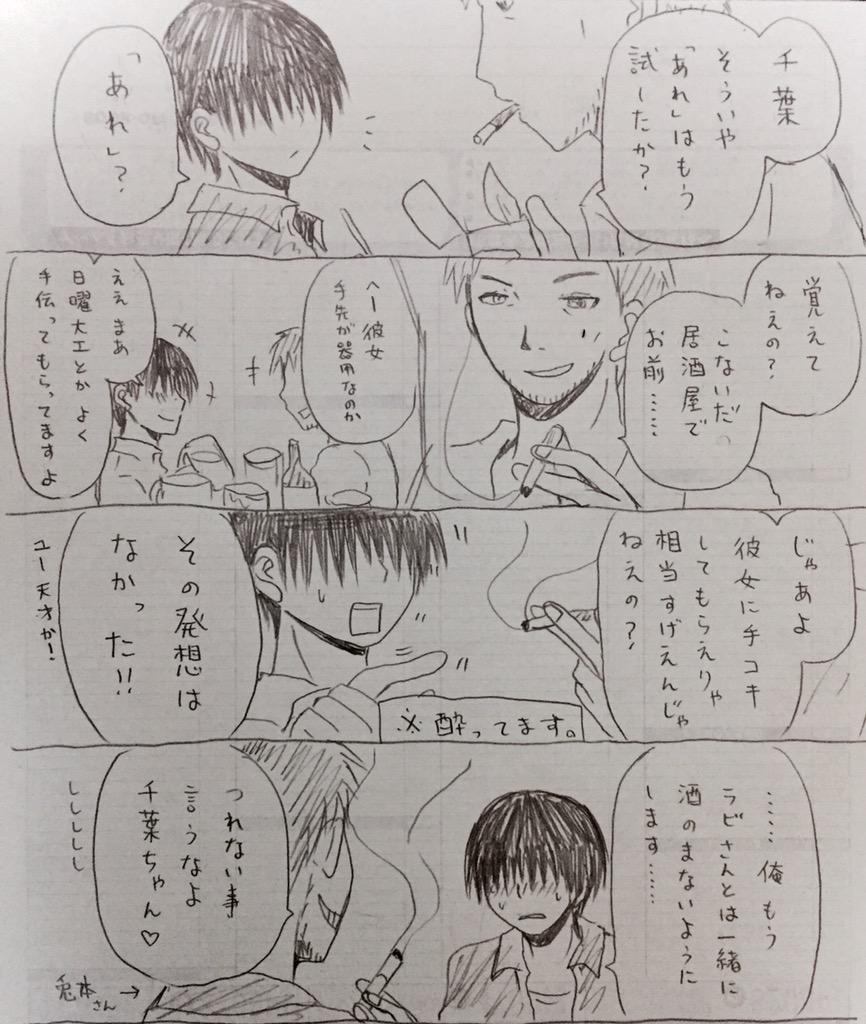 千葉
そういや
「あれ」はもう
試したか?
「あれ」?
覚えて
ねえの?
こないだの
居酒屋で
お前……
へー彼女
手先が器用なのか
ええまあ
日曜大工とか よく
手伝ってもらってますよ
じゃあよ
彼女に手コキ
してもらえりゃ
相当すげえんじゃ
ねえの?
その発想は
なかった!!
ユー天才か!
※酔ってます。
……俺もう
ラビさんとは一緒に
酒のまないように
します……
つれない事
言うなよ
千葉ちゃん♡
ししししし
兎本さん→